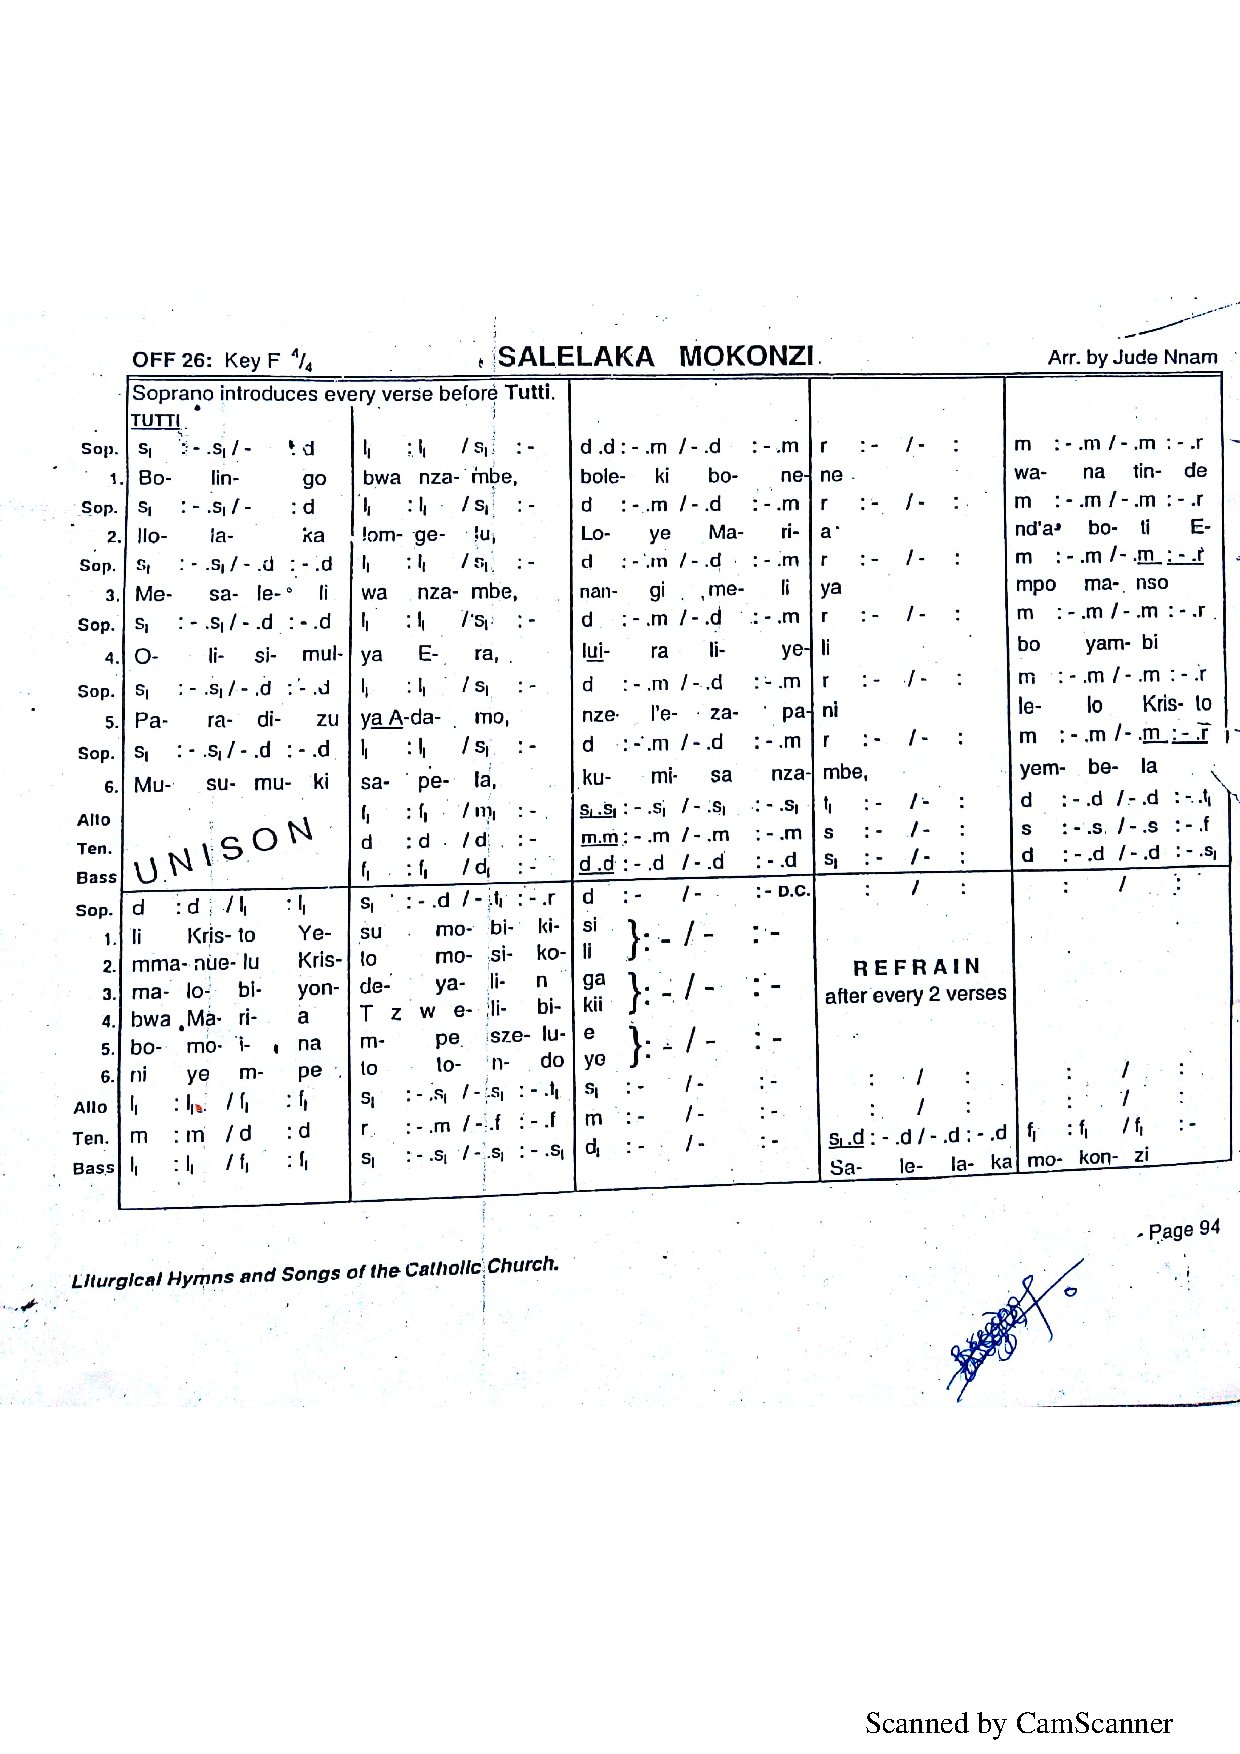 OFF 26: Key F 4/4 SALELAKA MOKONZI. Arr. by Jude Nnam
Soprano introduces every verse before Tutti.
TUTTI
Sop. s₁ :- .s₁ / - :d l₁ :l₁ / s₁ :- d .d :- .m / - .d :- .m r :- / - : m :- .m / - .m :- .r
1. Bo- lin- go bwa nza- mbe, bole- ki bo- ne- ne wa- na tin- de
Sop. s₁ :- .s₁ / - :d l₁ :l₁ / s₁ :- d :- .m / - .d :- .m r :- / - : m :- .m / - .m :- .r
2. Ilo- la- ka lom- ge- lu, Lo- ye Ma- ri- a nd'a bo- ti E-
Sop. s₁ :- .s₁ / - .d :- .d l₁ :l₁ / s₁ :- d :- .m / - .d :- .m r :- / - : m :- .m / - .m :- .r
3. Me- sa- le- li wa nza- mbe, nan- gi me- li ya mpo ma- nso
Sop. s₁ :- .s₁ / - .d :- .d l₁ :l₁ / s₁ :- d :- .m / - .d :- .m r :- / - : m :- .m / - .m :- .r
4. O- li- si- mul- ya E- ra, lui- ra li- ye- li bo yam- bi
Sop. s₁ :- .s₁ / - .d :- .d l₁ :l₁ / s₁ :- d :- .m / - .d :- .m r :- / - : m :- .m / - .m :- .r
5. Pa- ra- di- zu ya A-da- mo, nze- l'e- za- pa- ni le- lo Kris- to
Sop. s₁ :- .s₁ / - .d :- .d l₁ :l₁ / s₁ :- d :- .m / - .d :- .m r :- / - : m :- .m / - .m :- .r
6. Mu- su- mu- ki sa- pe- la, ku- mi- sa nza- mbe, yem- be- la
Alto f₁ :f₁ / m₁ :- s₁ .s₁ :- .s₁ / - .s₁ :- .s₁ t₁ :- / - : d :- .d / - .d :- .t₁
Ten. UNISON d :d / d :- m.m :- .m / - .m :- .m s :- / - : s :- .s / - .s :- .f
Bass f₁ :f₁ / d₁ :- d .d :- .d / - .d :- .d s₁ :- / - : d :- .d / - .d :- .s₁
Sop. d :d / l₁ :l₁ s₁ :- .d / - .t₁ :- .r d :- / - :- D.C. : / : : / :
1. li Kris- to Ye- su mo- bi- ki- si }:- / - :-
2. mma- nue- lu Kris- to mo- si- ko- li
3. ma- lo- bi- yon- de- ya- li- n ga }:- / - :- REFRAIN
4. bwa Ma- ri- a T z w e- li- bi- kii after every 2 verses
5. bo- mo- i- na m- pe sze- lu- e }:- / - :-
6. ni ye m- pe to to- n- do ye
Alto l₁ :l₁ / f₁ :f₁ s₁ :- .s₁ / - .s₁ :- .t₁ s₁ :- / - :- : / : : / :
Ten. m :m / d :d r :- .m / - .f :- .f m :- / - :- : / : : / :
Bass l₁ :l₁ / f₁ :f₁ s₁ :- .s₁ / - .s₁ :- .s₁ d₁ :- / - :- s₁ .d :- .d / - .d :- .d f₁ :f₁ / f₁ :-
Sa- le- la- ka mo- kon- zi
Page 94
Liturgical Hymns and Songs of the Catholic Church.
Scanned by CamScanner